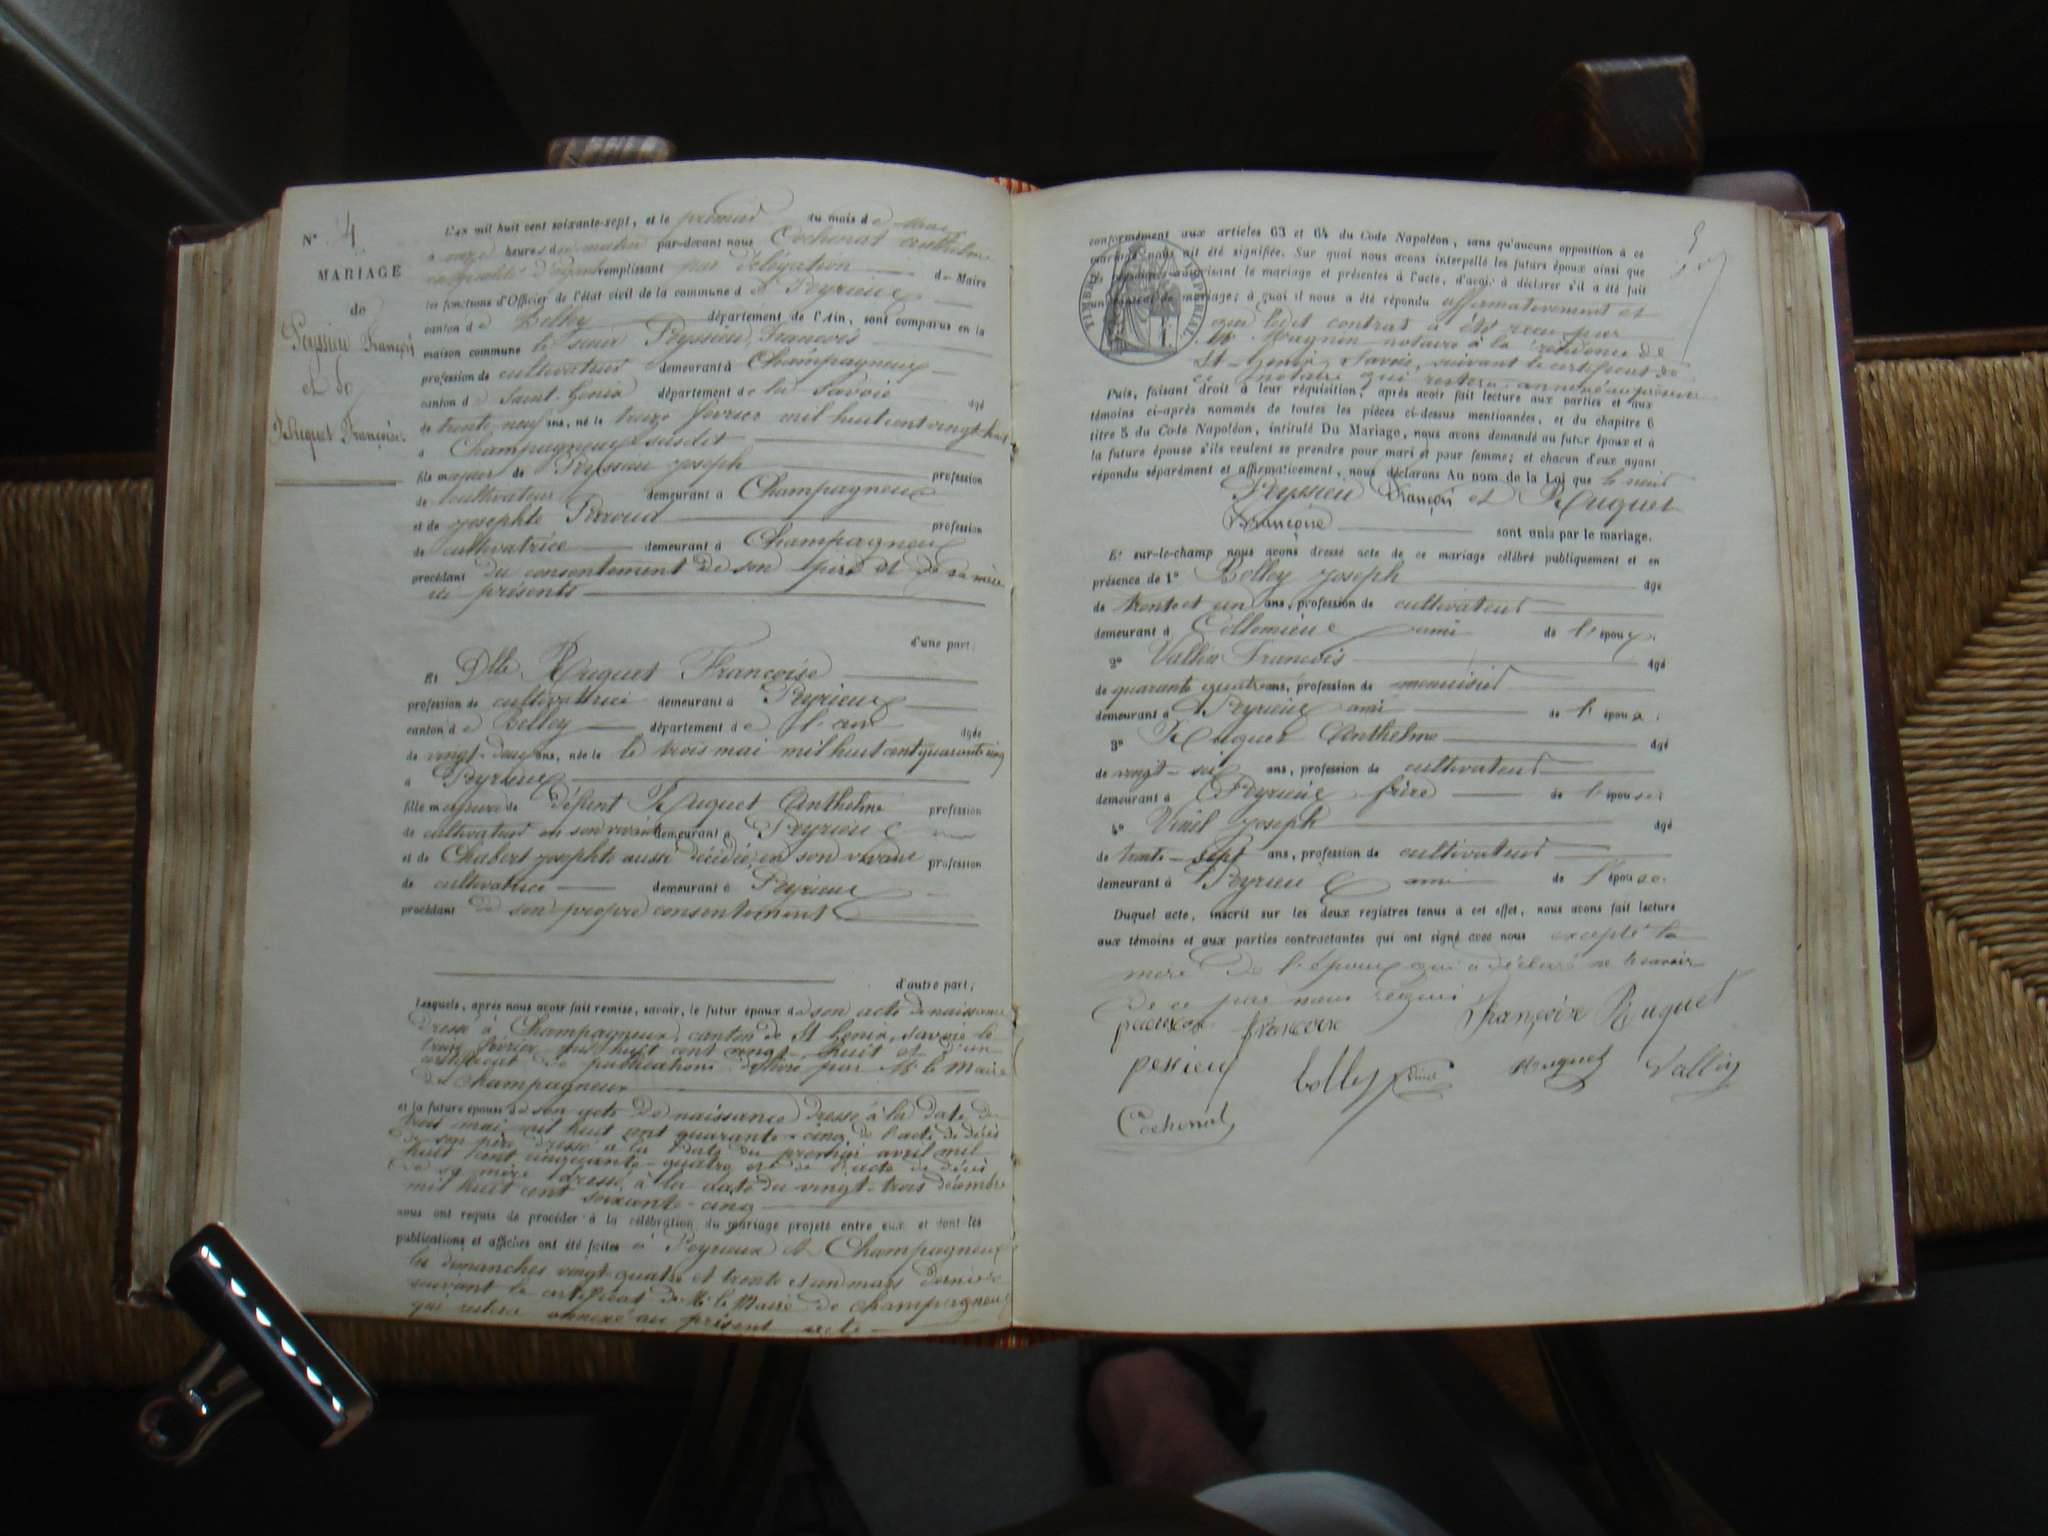 N° 4
MARIAGE
de
Peyssieu François
et de
Huguet Françoise
L'an mil huit cent soixante-sept, et le premier du mois de
à onze heures du matin par-devant nous Cochonat Anthelme
remplissant par délégation de Maire
les fonctions d'Officier de l'état civil de la commune de Peyrieux
canton de Belley département de l'Ain, sont comparus en la
maison commune le sieur Peyssieu François
profession de cultivateur demeurant à Champagneux
canton de Saint-Genix département de la Savoie âgé
de trente-neuf ans, né le treize février mil huit cent vingt-huit
à Champagneux susdit
fils majeur de Peyssieu Joseph profession
de cultivateur demeurant à Champagneux
et de Josephte Perroud profession
de cultivatrice demeurant à Champagneux
procédant du consentement de son père et de sa mère
ici présents
d'une part.
Et Dlle Huguet Françoise
profession de cultivatrice demeurant à Peyrieux
canton de Belley département de l'ain âgée
de vingt-deux ans, née le le trois mai mil huit cent quarante cinq
à Peyrieux
fille majeure de défunt Huguet Anthelme profession
de cultivateur en son vivant demeurant à Peyrieux
et de Chabert Josephte aussi décédée, en son vivant profession
de cultivatrice demeurant à Peyrieux
procédant de son propre consentement
d'autre part;
Lesquels, après nous avoir fait remise, savoir, le futur époux de son acte de naissance
dressé à Champagneux, canton de St Genix, Savoie le
treize février mil huit cent vingt-huit et d'un
certificat de publications délivré par Mr le Maire
de Champagneux
et la future épouse de son acte de naissance dressé à la date du
trois mai mil huit cent quarante-cinq de l'acte de décès
de son père dressé à la date du premier avril mil
huit cent cinquante-quatre et de l'acte de décès
de sa mère dressé à la date du vingt-trois décembre
mil huit cent soixante-cinq
nous ont requis de procéder à la célébration du mariage projeté entre eux et dont les
publications et affiches ont été faites à Peyrieux et Champagneux
les dimanches vingt-quatre et trente et un mars dernier
suivant le certificat de Mr le Maire de Champagneux
qui restera annexé au présent acte
5
TIMBRE IMPERIAL
conformément aux articles 63 et 64 du Code Napoléon, sans qu'aucune opposition à ce
mariage nous ait été signifiée. Sur quoi nous avons interpellé les futurs époux ainsi que
autorisant le mariage et présentes à l'acte, d'avoir à déclarer s'il a été fait
un contrat de mariage; à quoi il nous a été répondu affirmativement et
que ledit contrat a été reçu par
Me Magnin notaire à la résidence de
St-Genix, Savoie, suivant le certificat de
ce notaire qui restera annexé au présent
Puis, faisant droit à leur réquisition, après avoir fait lecture aux parties et aux
témoins ci-après nommés de toutes les pièces ci-dessus mentionnées, et du chapitre 6
titre 5 du Code Napoléon, intitulé Du Mariage, nous avons demandé au futur époux et à
la future épouse s'ils veulent se prendre pour mari et pour femme; et chacun d'eux ayant
répondu séparément et affirmativement, nous déclarons Au nom de la Loi que le sieur
Peyssieu François et Huguet
Françoise sont unis par le mariage.
Et sur-le-champ nous avons dressé acte de ce mariage célébré publiquement et en
présence de 1° Belley Joseph âgé
de trente et un ans, profession de cultivateur
demeurant à Collomieux ami de l'époux.
2° Vallin François âgé
de quarante quatre ans, profession de menuisier
demeurant à Peyrieux ami de l'époux;
3° Huguet Anthelme âgé
de vingt-six ans, profession de cultivateur
demeurant à Peyrieux frère de l'épouse;
4° Vinel Joseph âgé
de trente-sept ans, profession de cultivateur
demeurant à Peyrieux ami de l'épouse.
Duquel acte, inscrit sur les deux registres tenus à cet effet, nous avons fait lecture
aux témoins et aux parties contractantes qui ont signé avec nous excepté la
mère de l'époux qui a déclaré ne le savoir
de ce par nous requis
françoix Françoise Huguet
pessieu bolley Vinel huguet Vallin
Cochonat